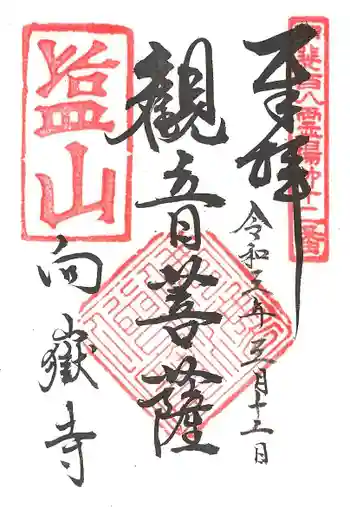 甲斐百八霊場第十二番
奉拝
令和三年三月十三日
觀音菩薩
塩山
向嶽寺